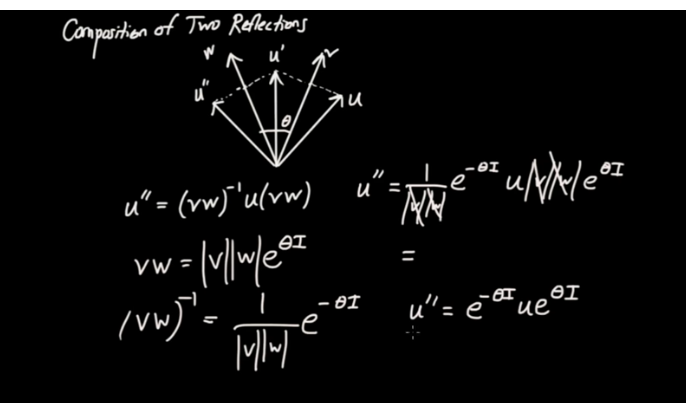 Composition of Two Reflections
w u' v
u'' u
θ
u'' = (vw)⁻¹u(vw)
vw = |v||w|e^{θI}
(vw)⁻¹ = 1/(|v||w|) e^{-θI}
u'' = 1/(|v||w|) e^{-θI} u|v||w|e^{θI}
=
u'' = e^{-θI} u e^{θI}